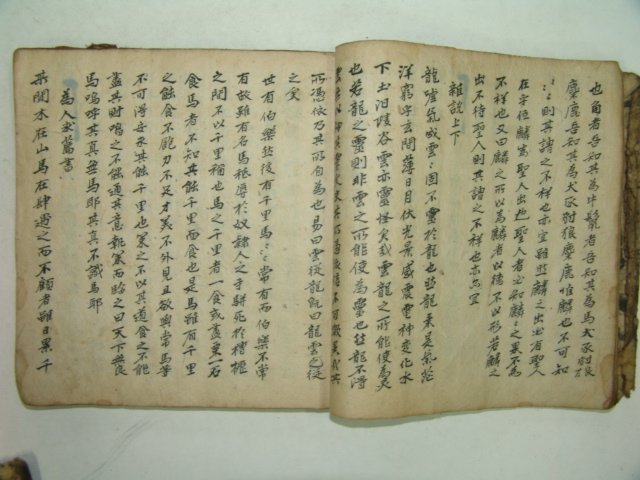 也角者吾知其為牛鬣者吾知其為馬犬豕豺狼
麋鹿吾知其為犬豕豺狼麋鹿唯麟也不可知
〻則其謂之不祥也亦宜雖然麟之出必有聖人
在乎位麟為聖人出也聖人者必知麟〻之果不為
不祥也又曰麟之所以為麟者以德不以形若麟之
出不待聖人則其謂之不祥也亦宜
雜說上下
龍噓氣成雲〻固不靈於龍也然龍乘是氣茫
洋窮乎玄間薄日月伏光景感震電神變化水
下土汩陵谷雲亦靈怪矣哉雲龍之所能使為靈
也若龍之靈則非雲之所能使為靈也然龍不得
所憑依乃其所自為也易曰雲從龍既曰龍雲從
之矣
世有伯樂然後有千里馬〻〻常有而伯樂不常
有故雖有名馬秪辱於奴隷人之手駢死於槽櫪
之間不以千里稱也馬之千里者一食或盡粟一石
食馬者不知其能千里而食也是馬雖有千里
之能食不飽力不足才美不外見且欲與常馬等
不可得安求其能千里也策之不以其道食之不能
盡其材鳴之不能通其意執策而臨之曰天下無良
馬嗚呼其真無馬耶其真不識馬耶
為人求薦書
某聞木在山馬在肆過之而不顧者雖日累千